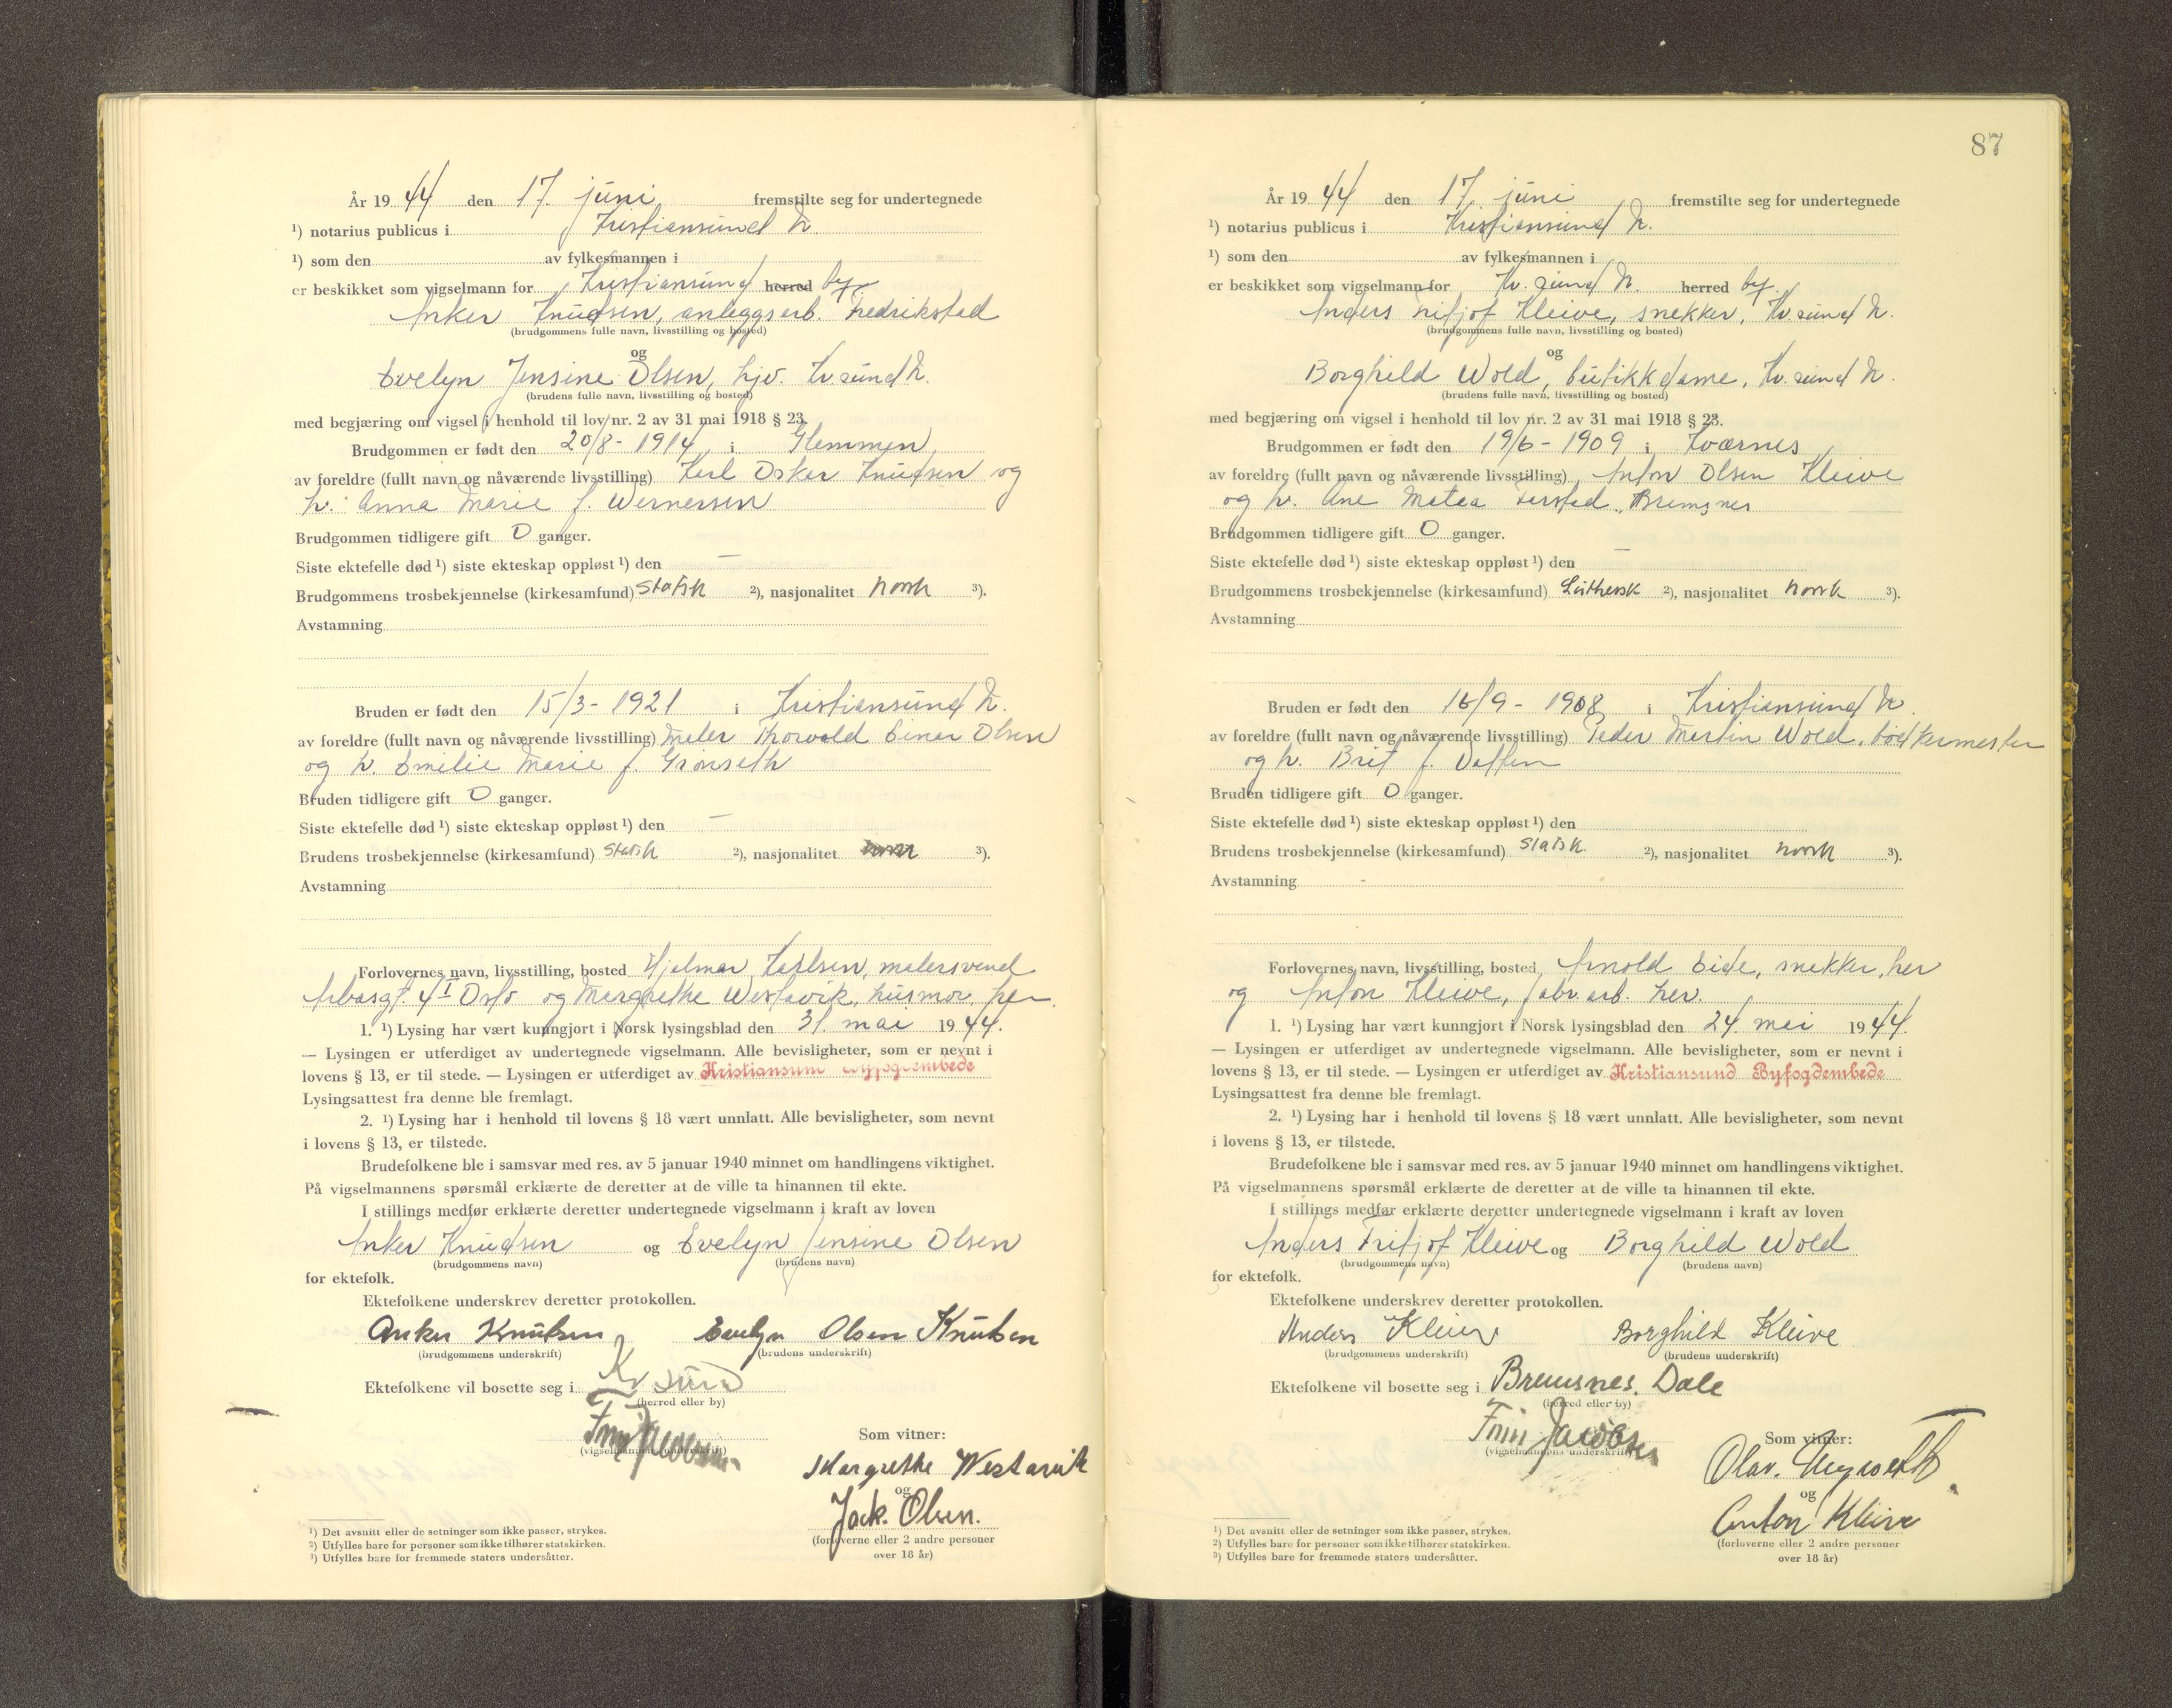 År 1944 den 17. juni fremstilte seg for undertegnede
¹) notarius publicus i Kristiansund N.
¹) som den av fylkesmannen i
er beskikket som vigselmann for Kristiansund herred by.
Anker Knudsen, anleggsarb. Fredrikstad
(brudgommens fulle navn, livsstilling og bosted)
og
Evelyn Jensine Olsen, hjv. Kr.sund N.
(brudens fulle navn, livsstilling og bosted)
med begjæring om vigsel i henhold til lov nr. 2 av 31 mai 1918 § 23.
Brudgommen er født den 20/8-1914 i Glemmen
av foreldre (fullt navn og nåværende livsstilling) Karl Oskar Knudsen og
h. Anna Marie f. Wernersen
Brudgommen tidligere gift 0 ganger.
Siste ektefelle død ¹) siste ekteskap oppløst ¹) den —
Brudgommens trosbekjennelse (kirkesamfund) Statsk ²), nasjonalitet norsk ³).
Avstamning
Bruden er født den 15/3-1921 i Kristiansund N.
av foreldre (fullt navn og nåværende livsstilling) Maler Thorvald Einar Olsen
og h. Emelie Marie f. Grønseth
Bruden tidligere gift 0 ganger.
Siste ektefelle død ¹) siste ekteskap oppløst ¹) den —
Brudens trosbekjennelse (kirkesamfund) Statsk ²), nasjonalitet norsk ³).
Avstamning
Forlovernes navn, livsstilling, bosted Hjalmar Karlsen, malersvend
4 I Oslo og Margrethe Westavik, husmor, her.
1. ¹) Lysing har vært kunngjort i Norsk lysingsblad den 31. mai 1944.
— Lysingen er utferdiget av undertegnede vigselmann. Alle bevisligheter, som er nevnt i
lovens § 13, er til stede. — Lysingen er utferdiget av Kristiansund Byfogdembede
Lysingsattest fra denne ble fremlagt.
2. ¹) Lysing har i henhold til lovens § 18 vært unnlatt. Alle bevisligheter, som nevnt
i lovens § 13, er tilstede.
Brudefolkene ble i samsvar med res. av 5 januar 1940 minnet om handlingens viktighet.
På vigselmannens spørsmål erklærte de deretter at de ville ta hinannen til ekte.
I stillings medfør erklærte deretter undertegnede vigselmann i kraft av loven
Anker Knudsen og Evelyn Jensine Olsen
(brudgommens navn) (brudens navn)
for ektefolk.
Ektefolkene underskrev deretter protokollen.
Anker Knudsen Evelyn Olsen Knudsen
(brudgommens underskrift) (brudens underskrift)
Ektefolkene vil bosette seg i Kr sund
(herred eller by)
Jacobsen
(vigselmannens underskrift)
Som vitner:
Margrethe Westavik
og
Jack. Olsen.
(forloverne eller 2 andre personer
over 18 år)
¹) Det avsnitt eller de setninger som ikke passer, strykes.
²) Utfylles bare for personer som ikke tilhører statskirken.
³) Utfylles bare for fremmede staters undersåtter.
87
År 1944 den 17. juni fremstilte seg for undertegnede
¹) notarius publicus i Kristiansund N.
¹) som den av fylkesmannen i
er beskikket som vigselmann for Kr.sund N. herred by.
Anders Fritjof Kleive, snekker, Kr.sund N.
(brudgommens fulle navn, livsstilling og bosted)
og
Borghild Wold, butikkdame, Kr.sund N.
(brudens fulle navn, livsstilling og bosted)
med begjæring om vigsel i henhold til lov nr. 2 av 31 mai 1918 § 23.
Brudgommen er født den 19/6-1909 i Kværnes
av foreldre (fullt navn og nåværende livsstilling) Anton Olsen Kleive
og h. Ane Matea, Bremsnes
Brudgommen tidligere gift 0 ganger.
Siste ektefelle død ¹) siste ekteskap oppløst ¹) den —
Brudgommens trosbekjennelse (kirkesamfund) Luthersk ²), nasjonalitet norsk ³).
Avstamning
Bruden er født den 16/9-1908 i Kristiansund N.
av foreldre (fullt navn og nåværende livsstilling) Peder Martin Wold, bødkermester
og h. Brit f. Dalen
Bruden tidligere gift 0 ganger.
Siste ektefelle død ¹) siste ekteskap oppløst ¹) den
Brudens trosbekjennelse (kirkesamfund) Statsk. ²), nasjonalitet norsk ³).
Avstamning -
Forlovernes navn, livsstilling, bosted, Arnold Eide, snekker, her
og Anton Kleive, fabr.arb. her.
1. ¹) Lysing har vært kunngjort i Norsk lysingsblad den 24. mai 1944.
— Lysingen er utferdiget av undertegnede vigselmann. Alle bevisligheter, som er nevnt i
lovens § 13, er til stede. — Lysingen er utferdiget av Kristiansund Byfogdembede
Lysingsattest fra denne ble fremlagt.
2. ¹) Lysing har i henhold til lovens § 18 vært unnlatt. Alle bevisligheter, som nevnt
i lovens § 13, er tilstede.
Brudefolkene ble i samsvar med res. av 5 januar 1940 minnet om handlingens viktighet.
På vigselmannens spørsmål erklærte de deretter at de ville ta hinannen til ekte.
I stillings medfør erklærte deretter undertegnede vigselmann i kraft av loven
Anders Fritjof Kleive og Borghild Wold
(brudgommens navn) (brudens navn)
for ektefolk.
Ektefolkene underskrev deretter protokollen.
Anders Kleive Borghild Kleive
(brudgommens underskrift) (brudens underskrift)
Ektefolkene vil bosette seg i Bremsnes. Dale
(herred eller by)
Jacobsen
(vigselmannens underskrift)
Som vitner:
Olav.
og
Anton Kleive
(forloverne eller 2 andre personer
over 18 år)
¹) Det avsnitt eller de setninger som ikke passer, strykes.
²) Utfylles bare for personer som ikke tilhører statskirken.
³) Utfylles bare for fremmede staters undersåtter.